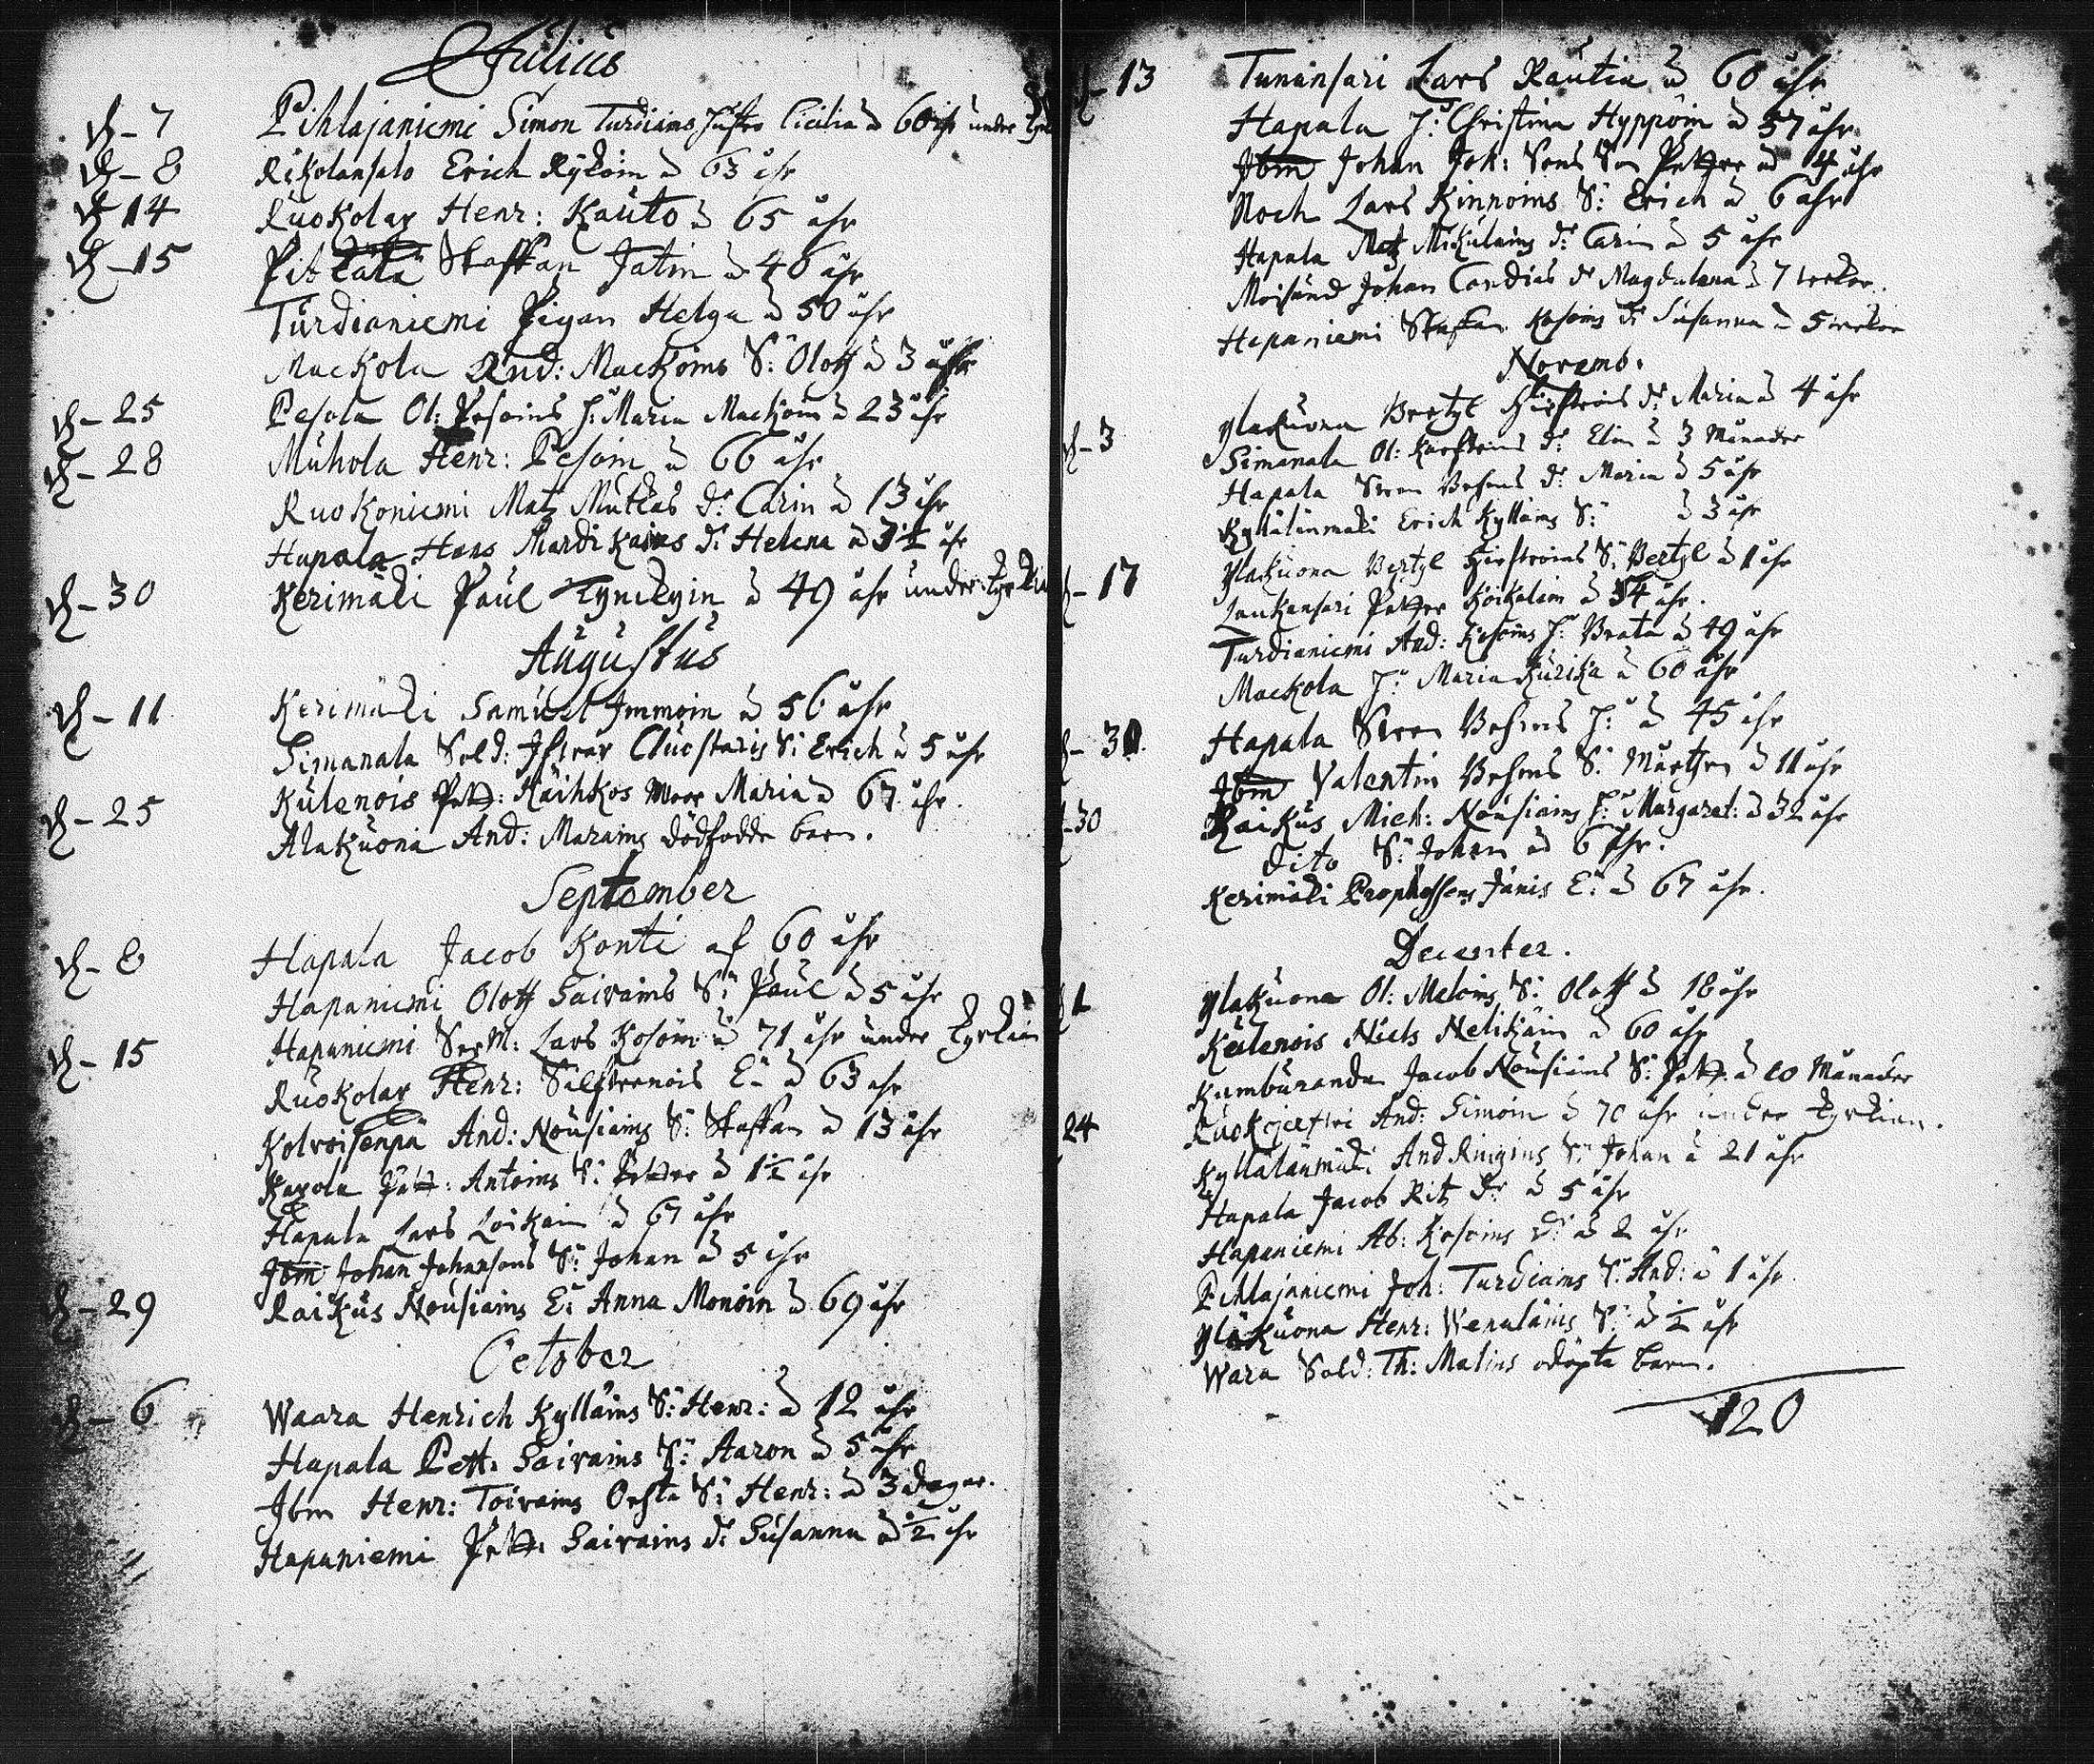 Julius
d. 7 Pihlajaniemi Simon Turdiains hustro Cicilia à 60 åhr under
d. 8 Rikolansalo Erich Rÿköin à 63 åhr
d. 14 Ruokolax Henr: Kauto à 65 åhr
d. 15 Pitkälä Staffan Jatin à 46 åhr
Turdianiemi Pigan Helga à 50 åhr
Mackola And: Mackoins S: Oloff à 3 åhr
d. 25 Pesola Ol: Pesoins H: Maria Mackoin à 23 åhr
d. 28 Muhola Henr: Pesoin à 66 åhr
Ruokoniemi Matz Mutkas d: Carin à 13 åhr
Hapala Hans Mardikains d: Helena à 3½ åhr
d. 30 Kerimäki Paul Tynckyin à 49 åhr under
Augustus
d. 11 Kerimäki Samuel Immoin à 56 åhr
Simanala Sold: S: Erich à 5 åhr
d. 25 Kulenois Pett: Häihkos Moor Maria à 67 åhr.
Alakuona And: Marains dödfödde barn.
September
d. 8 Hapala Jacob Konti af 60 åhr
Hapaniemi Oloff Sairains S: Paul à 5 åhr
d. 15 Hapaniemi Lars Kosoin à 71 åhr under kyrkian
Ruokolax Henr: E: à 63 åhr
Kolvoisenpä And: Nousiains S: Staffan à 13 åhr
Pett: Antoins S: Petter à 1½ åhr
Hapala Lars Loikain à 67 åhr
Ibm Johan Johansons S: Johan à 5 åhr
d. 29 Raikus Nousiains E: Anna Monoin à 69 åhr
October
d. 6 Waara Henrich Kylläins S: Henr: à 12 åhr
Hapala Pett. Sairains S: Aaron à 5 åhr
Ibm Henr: Toivains S: Henr: à 3 dagar.
Hapaniemi Pett. Sairains d: Susanna à ½ åhr
d. 13 Tunansari Lars Rautia à 60 åhr
Hapala H: Christina Hyppöin à 37 åhr
Ibm Johan Joh: Sons Son Petter à 4 åhr
Noch Lars Kinnoins S: Erich à 6 åhr
Hapala Matz Mikulains d: Carin à 5 åhr
Johan d: Magdalena à 7 wekor.
Hapaniemi Staffan Kosoins d: Susanna à 5 wekor
Novemb:
Ylakuona Bertyl d: Maria à 4 åhr
d. 3 Simanala Ol: d: Elin à 3 Månader
Hapala Sven d: Maria à 5 åhr
Kyllälänmäki Erich Kylläins S: à 3 åhr
Ylakuona Bertyl S: Bertyl à 1 åhr
d. 17 Laukansari Petter à 54 åhr.
Turdianiemi And: Kosoins H: Brata à 49 åhr
Mackola H: Maria Kurika à 60 åhr
d. 30. Hapala Sven H: à 45 åhr
Ibm Valentin S: Mårthen à 11 åhr
30 Raikus Mich: Nousiains H: Margaret: à 32 åhr
dito S: Johan à 6 åhr.
Kerimäki Janis E: à 67 åhr.
December.
Ylakuona Ol: Meloins S: Oloff à 18 åhr
Kulenois Niels Nelikäin à 60 åhr
Kumburanda Jacob Nousiains S: Pett. à 10 Månader
24 And: Simoin à 70 åhr under kyrkian.
Kyllälänmäki And S: Johan à 21 åhr
Hapala Jacob Ritz d: à 5 åhr
Hapaniemi Ab: Kosoins d: à 2 åhr
Pihlajaniemi Joh: Turdiains S: And: à 1 åhr
Yläkuona Henr: Wenäläins S: à ½ åhr
Wara Sold: Th: Malins odöpta barn.
120